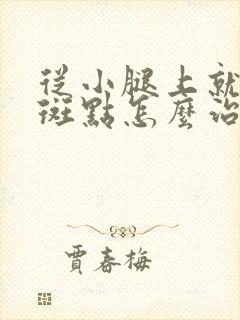 從小腿上就
斑點怎麼治
賈春梅